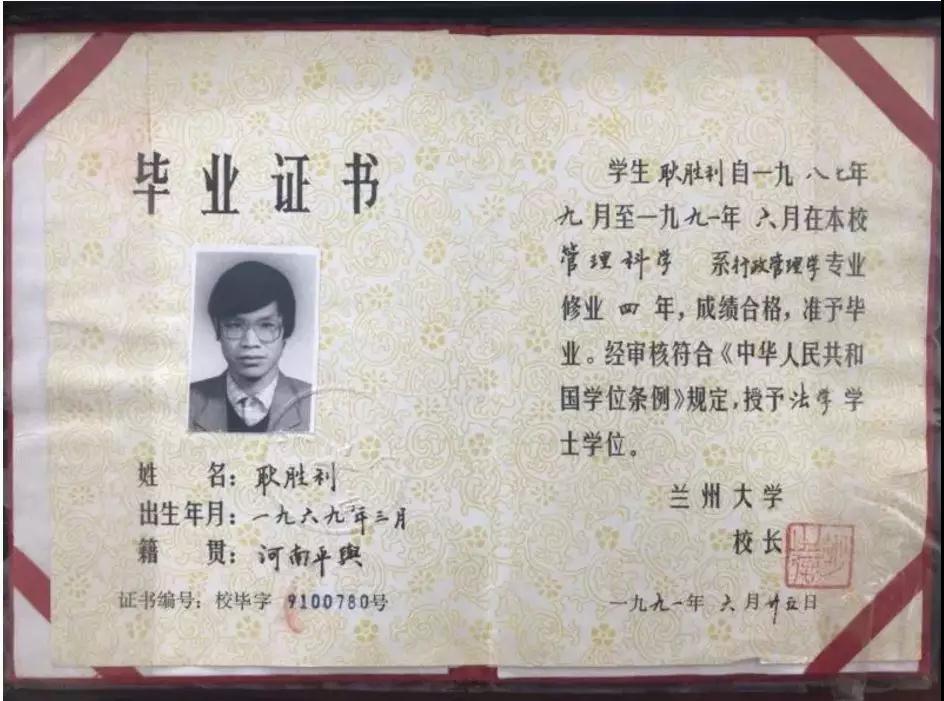 毕业证书
姓 名：耿胜利
出生年月：一九六九年三月
籍 贯：河南平舆
证书编号：校毕字 9100780号
学生耿胜利自一九八七年
九月至一九九一年六月在本校
管理科学 系行政管理学专业
修业四年，成绩合格，准予毕
业。经审核符合《中华人民共和
国学位条例》规定，授予法学学
士学位。
兰州大学
校长
一九九一年六月廿五日